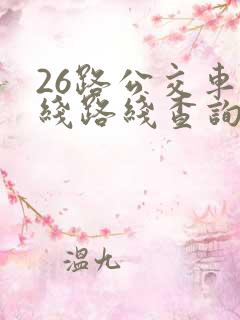 26路公交車
綫路綫查詢
溫九